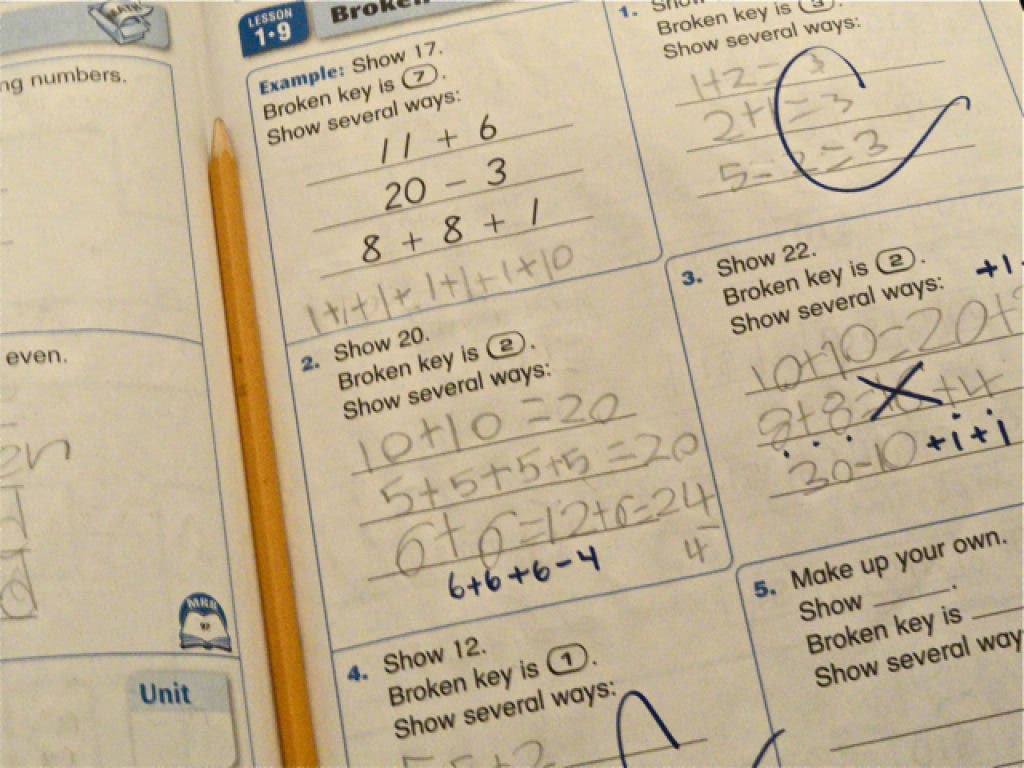 MATH
ng numbers.
even.
en
MRB
Unit
LESSON
1•9
Broken
Example: Show 17.
Broken key is 7.
Show several ways:
11 + 6
20 - 3
8 + 8 + 1
1.
Broken key is
Show several ways:
1+2=
2+1=3
5-2=3
2. Show 20.
Broken key is 2.
Show several ways:
10+10=20
5+5+5+5=20
6+6=12+6=24
-
4
6+6+6-4
3. Show 22.
Broken key is 2.
Show several ways:
+1
10+10=20+
8+8= +4
30-10+1+1
4. Show 12.
Broken key is 1.
Show several ways:
5. Make up your own.
Show ____.
Broken key is
Show several way